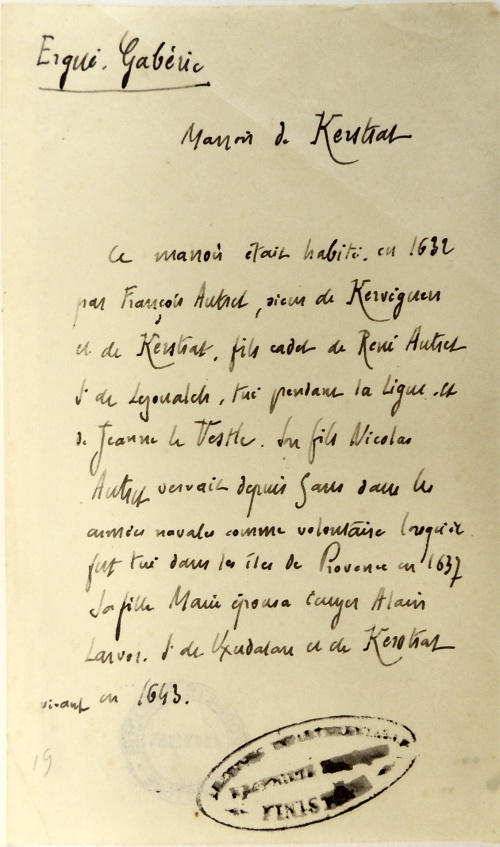 Ergué-Gabéric
Manoir de Kerstrat
Ce manoir était habité, en 1632
par François Autret, sieur de Kervéguen
et de Kerstrat, fils cadet de René Autret
Sr de Lezoualch, tué pendant la Ligue, et
de Jeanne le Vestle. Son fils Nicolas
Autret servait depuis 5 ans dans les
armées navales comme volontaire lorsqu'il
fut tué dans les îles de Provence en 1637
Sa fille Marie épousa écuyer Alain
Larvor, Sr de et de Kerstrat
vivant en 1643.
19
ARCHIVES DÉPARTEMENTALES
PROPRIÉTÉ
FINIS